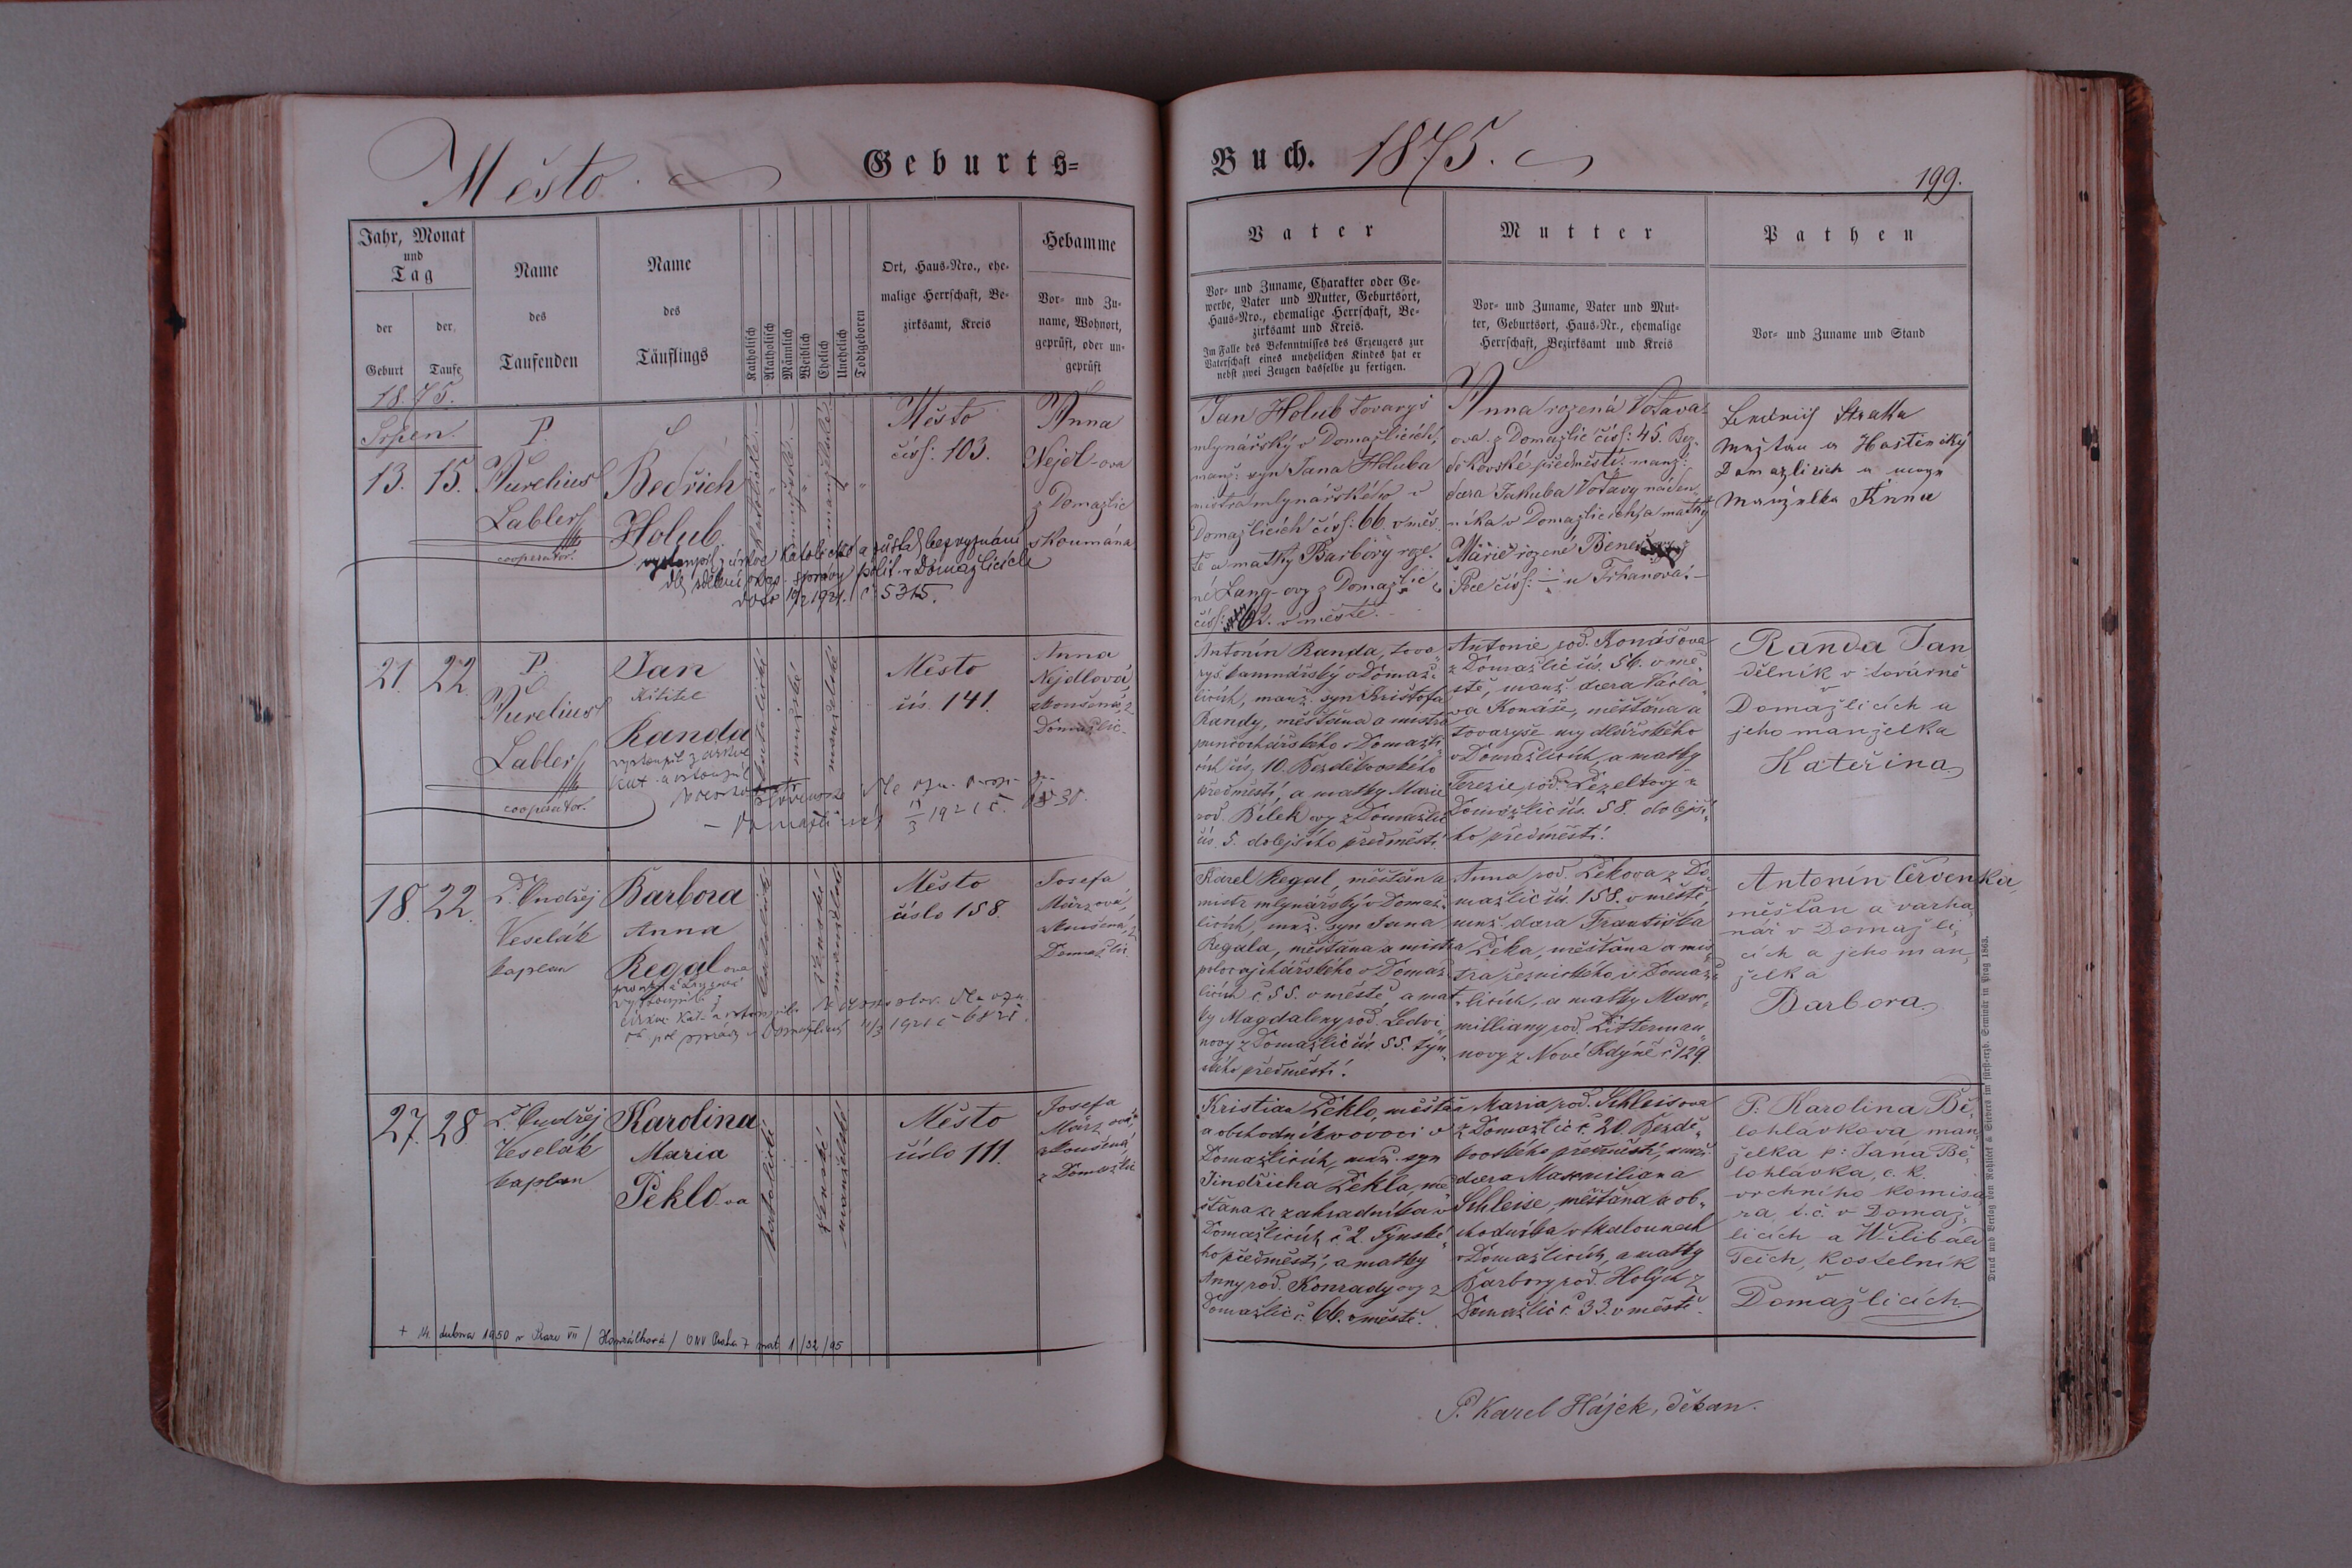 Město
Geburts=
Buch. 1875.
199.
Jahr, Monat
und
Tag
der
Geburt
der
Taufe
Name
des
Taufenden
Name
des
Täuflings
Katholisch
Akatholisch
Männlich
Weiblich
Ehelich
Unehelich
Todtgeboren
Ort, Haus=Nro., ehe=
malige Herrschaft, Be=
zirksamt, Kreis
Hebamme
Vor= und Zu=
name, Wohnort,
geprüft, oder un=
geprüft
Vater
Vor= und Zuname, Charakter oder Ge=
werbe, Vater und Mutter, Geburtsort,
Haus=Nro., ehemalige Herrschaft, Be=
zirksamt und Kreis.
Im Falle des Bekenntnisses des Erzeugers zur
Vaterschaft eines unehelichen Kindes hat er
nebst zwei Zeugen dasselbe zu fertigen.
Mutter
Vor= und Zuname, Vater und Mut=
ter, Geburtsort, Haus=Nr., ehemalige
Herrschaft, Bezirksamt und Kreis
Pathen
Vor= und Zuname und Stand
1875.
Srpen.
13. 15.
P.
Aurelius
Labler
cooperator.
Bedřich
Holub
katolické
mužské
manželské
Město
čís: 103.
Anna
Nejdl-ova
z Domažlic
skoumána
vystoupil z církve katolické a zůstal bez vyznání
dle sdělení okres. správy polit. v Domažlicích
1921. č. 5315.
Jan Holub tovaryš
mlynářský v Domažlicích,
manž: syn Jana Holuba
mistra mlynářského v
Domažlicích čís: 66. v měs
tě a matky Barbory roze
né Lang-ovy z Domažlic
čís: 62. v městě.
Anna rozená Votava-
ova z Domažlic čís: 45. Bez-
děkovské předměstí. manž:
dcera Jakuba Votavy náden
níka v Domažlicích, a matky
Marie rozené
čís: u Trhanova.
Bedřich Stratta
v
Domažlicích a
manželka Anna
21. 22.
P.
Aurelius
Labler
cooperator.
Jan
Křtitel
Randa
vystoupil z církve
kat. a vstoupil
1921 č.
katolické
mužské
manželské
Město
čís. 141.
Anna
Nejdlová
zkoušená, z
Domažlic.
Antonín Randa, tova
ryš kamnářský v Domaž
licích, manž. syn Kristofa
Randy, měšťana a mistra
punčochářského v Domažli
cích čís. 10. Bezděkovského
předměstí, a matky Marie
rod. Bílek ovy z Domažlic
čís. 5. dolejšího předměstí.
Antonie rod. Konášova
z Domažlic čís. 56. v mě
stě, manž. dcera Václa
va Konáše, měšťana a
tovaryše mydlářského
v Domažlicích, a matky
Terezie, rod. Pezeltovy z
Domažlic čís. 58. dolejší
ho předměstí.
Randa Jan
dělník v továrně
v
Domažlicích a
jeho manželka
Kateřina
18. 22.
P. Ondřej
Veselák
kaplan
Barbora
Anna
Regal ova
vystoupila z
církve kat. a vstoupila
správy v Domažlicích 11/3 1921 č.
katolické
ženské
manželské
Město
číslo 158.
Josefa
Märzová,
zkoušená, z
Domažlic
Karel Regal měšťan a
mistr mlynářský v Domaž
licích, manž. syn Jana
Regala, měšťana a mistra
provazníkářského v Domaž
licích č. 55. v městě, a mat
ky Magdaleny rod. Ledvi
novy z Domažlic čís. 55. týn
ského předměstí.
Anna rod. Pekova z Do
mažlic čís. 158. v městě,
manž. dcera Františka
Peka, měšťana a mis
tra řeznického v Domaž
licích, a matky Max
milliany rod. Litterman
novy z Nové Kdýně č. 129.
Antonín Červenka,
měšťan a varha
nář v Domažli,
cích a jeho man,
želka
Barbora
27. 28
P. Ondřej
Veselák
kaplan
Karolina
Maria
Peklo-va
katolické
ženské
manželské
Město
číslo 111.
Josefa
März ová,
zkoušená,
z Domažlic
Kristian Peklo, měšťan
a obchodník v ovoci v
Domažlicích, manž. syn
Jindřicha Pekla, mě
šťana a zahradníka v
Domažlicích č. 2. Týnské
ho předměstí, a matky
Anny rod. Konrady ovy z
Domažlic č. 66. v městě.
Maria rod. Schleisova
z Domažlic č. 20 Bezdě
kovského předměstí, manž.
dcera Maxmiliana
Schleise, měšťana a ob
chodníka v tkalounech
v Domažlicích, a matky
Barbory rod. Holých z
Domažlic č. 33. v městě.
P: Karolina Bě,
lohlávkova, man,
želka p: Jana Bě,
lohlávka, c. k.
vrchního komisa
ra, t. č. v Domaž,
licích a Wilibald
Teich, kostelník
v
Domažlicích
+ 14. dubna 1950 v Praze VII / Honzátková / ONV Praha 7 mat 1/32/95
P. Karel Hájek, děkan.
Druck und Verlag von Rohliček & Sievers im fürst-erzb. Seminär in Prag 1863.